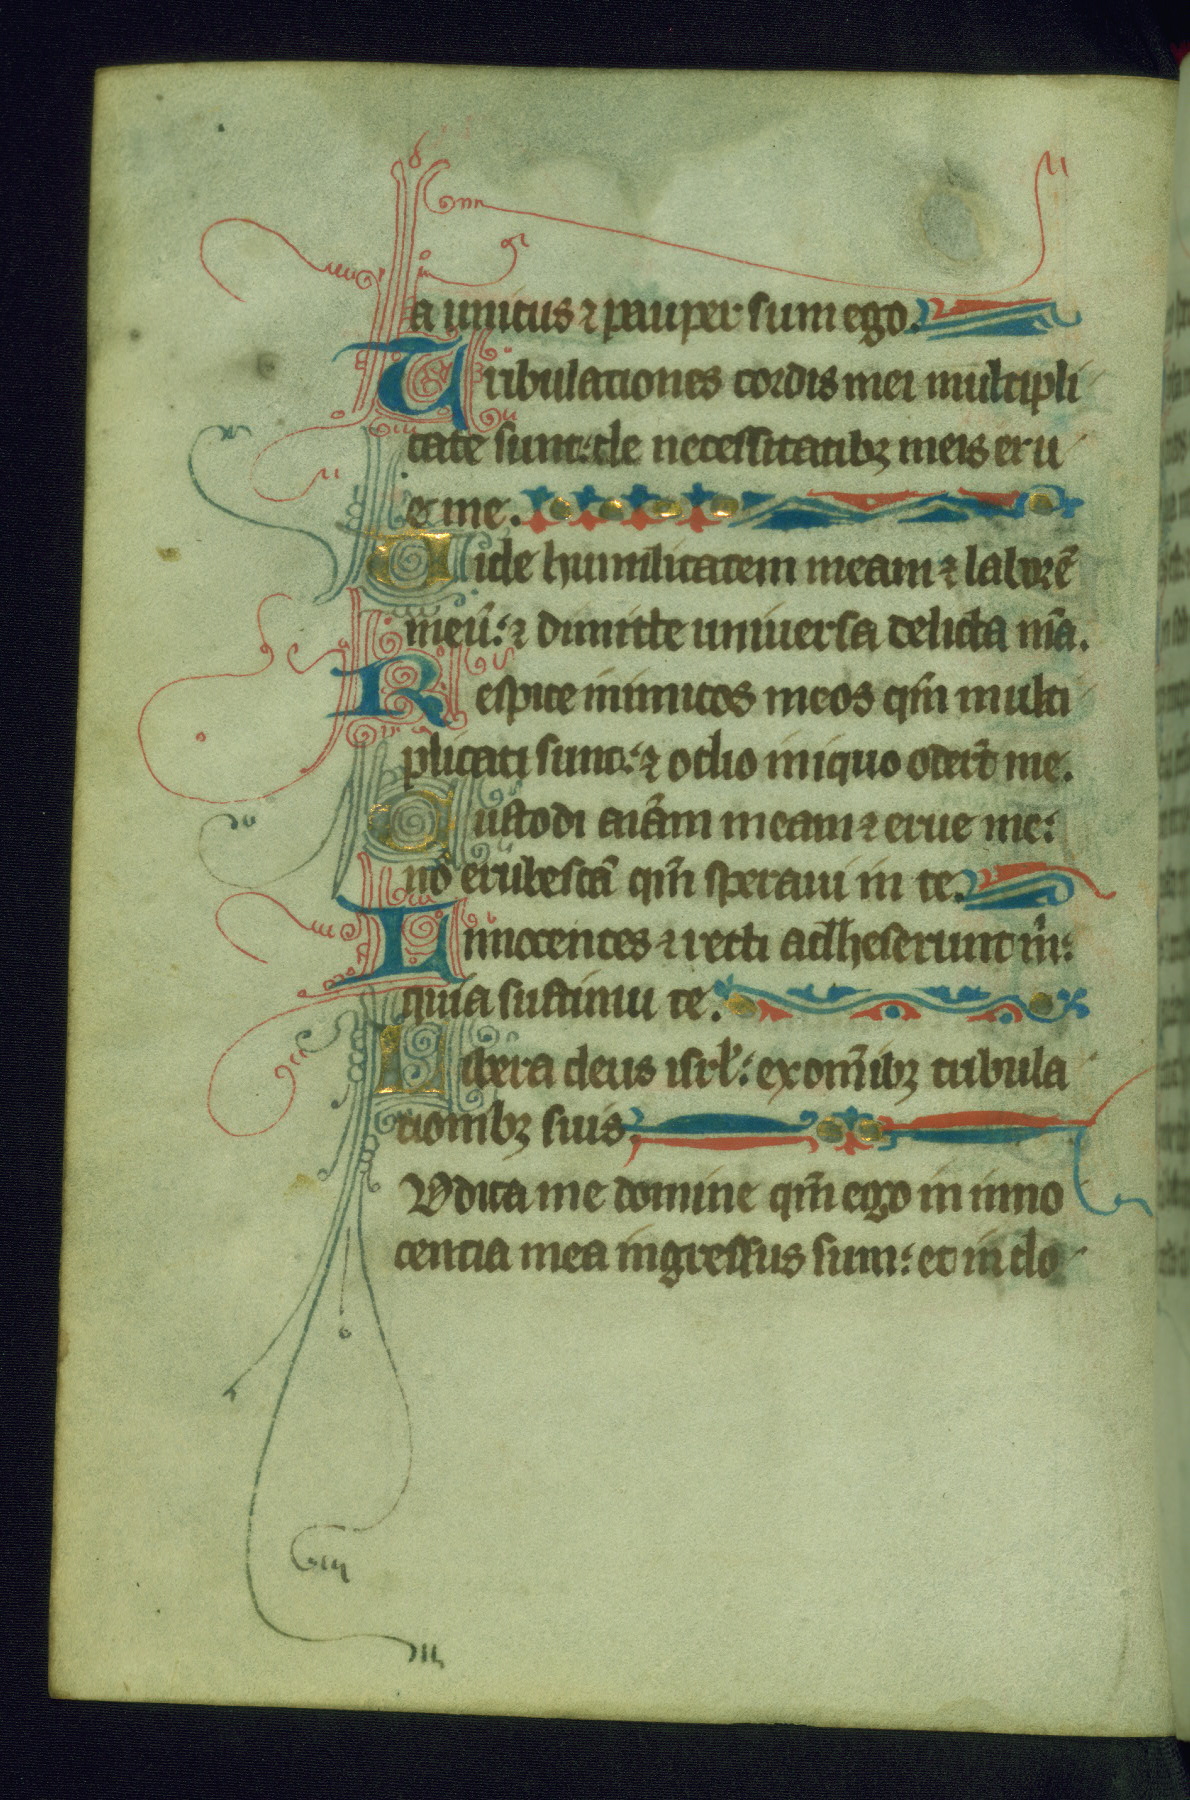 a unicus ⁊ pauper sum ego.
Tribulationes cordis mei multipli
cate sunt: de necessitatibꝫ meis eru
e me.
Vide humilitatem meam ⁊ laborē
meū: ⁊ dimitte uniuersa delicta m̄a.
Respice inimicos meos qm̄ multi
plicati sunt: ⁊ odio iniquo oder̄t me.
Custodi aīam meam ⁊ erue me:
nō erubescā qm̄ speraui in te.
Innocentes ⁊ recti adheserunt m̄:
quia sustinui te.
Libera deus isrl̄: ex om̄ibꝫ tribula
tionibꝫ suis.
Vdica me domine qm̄ ego in inno
centia mea ingressus sum: et in do